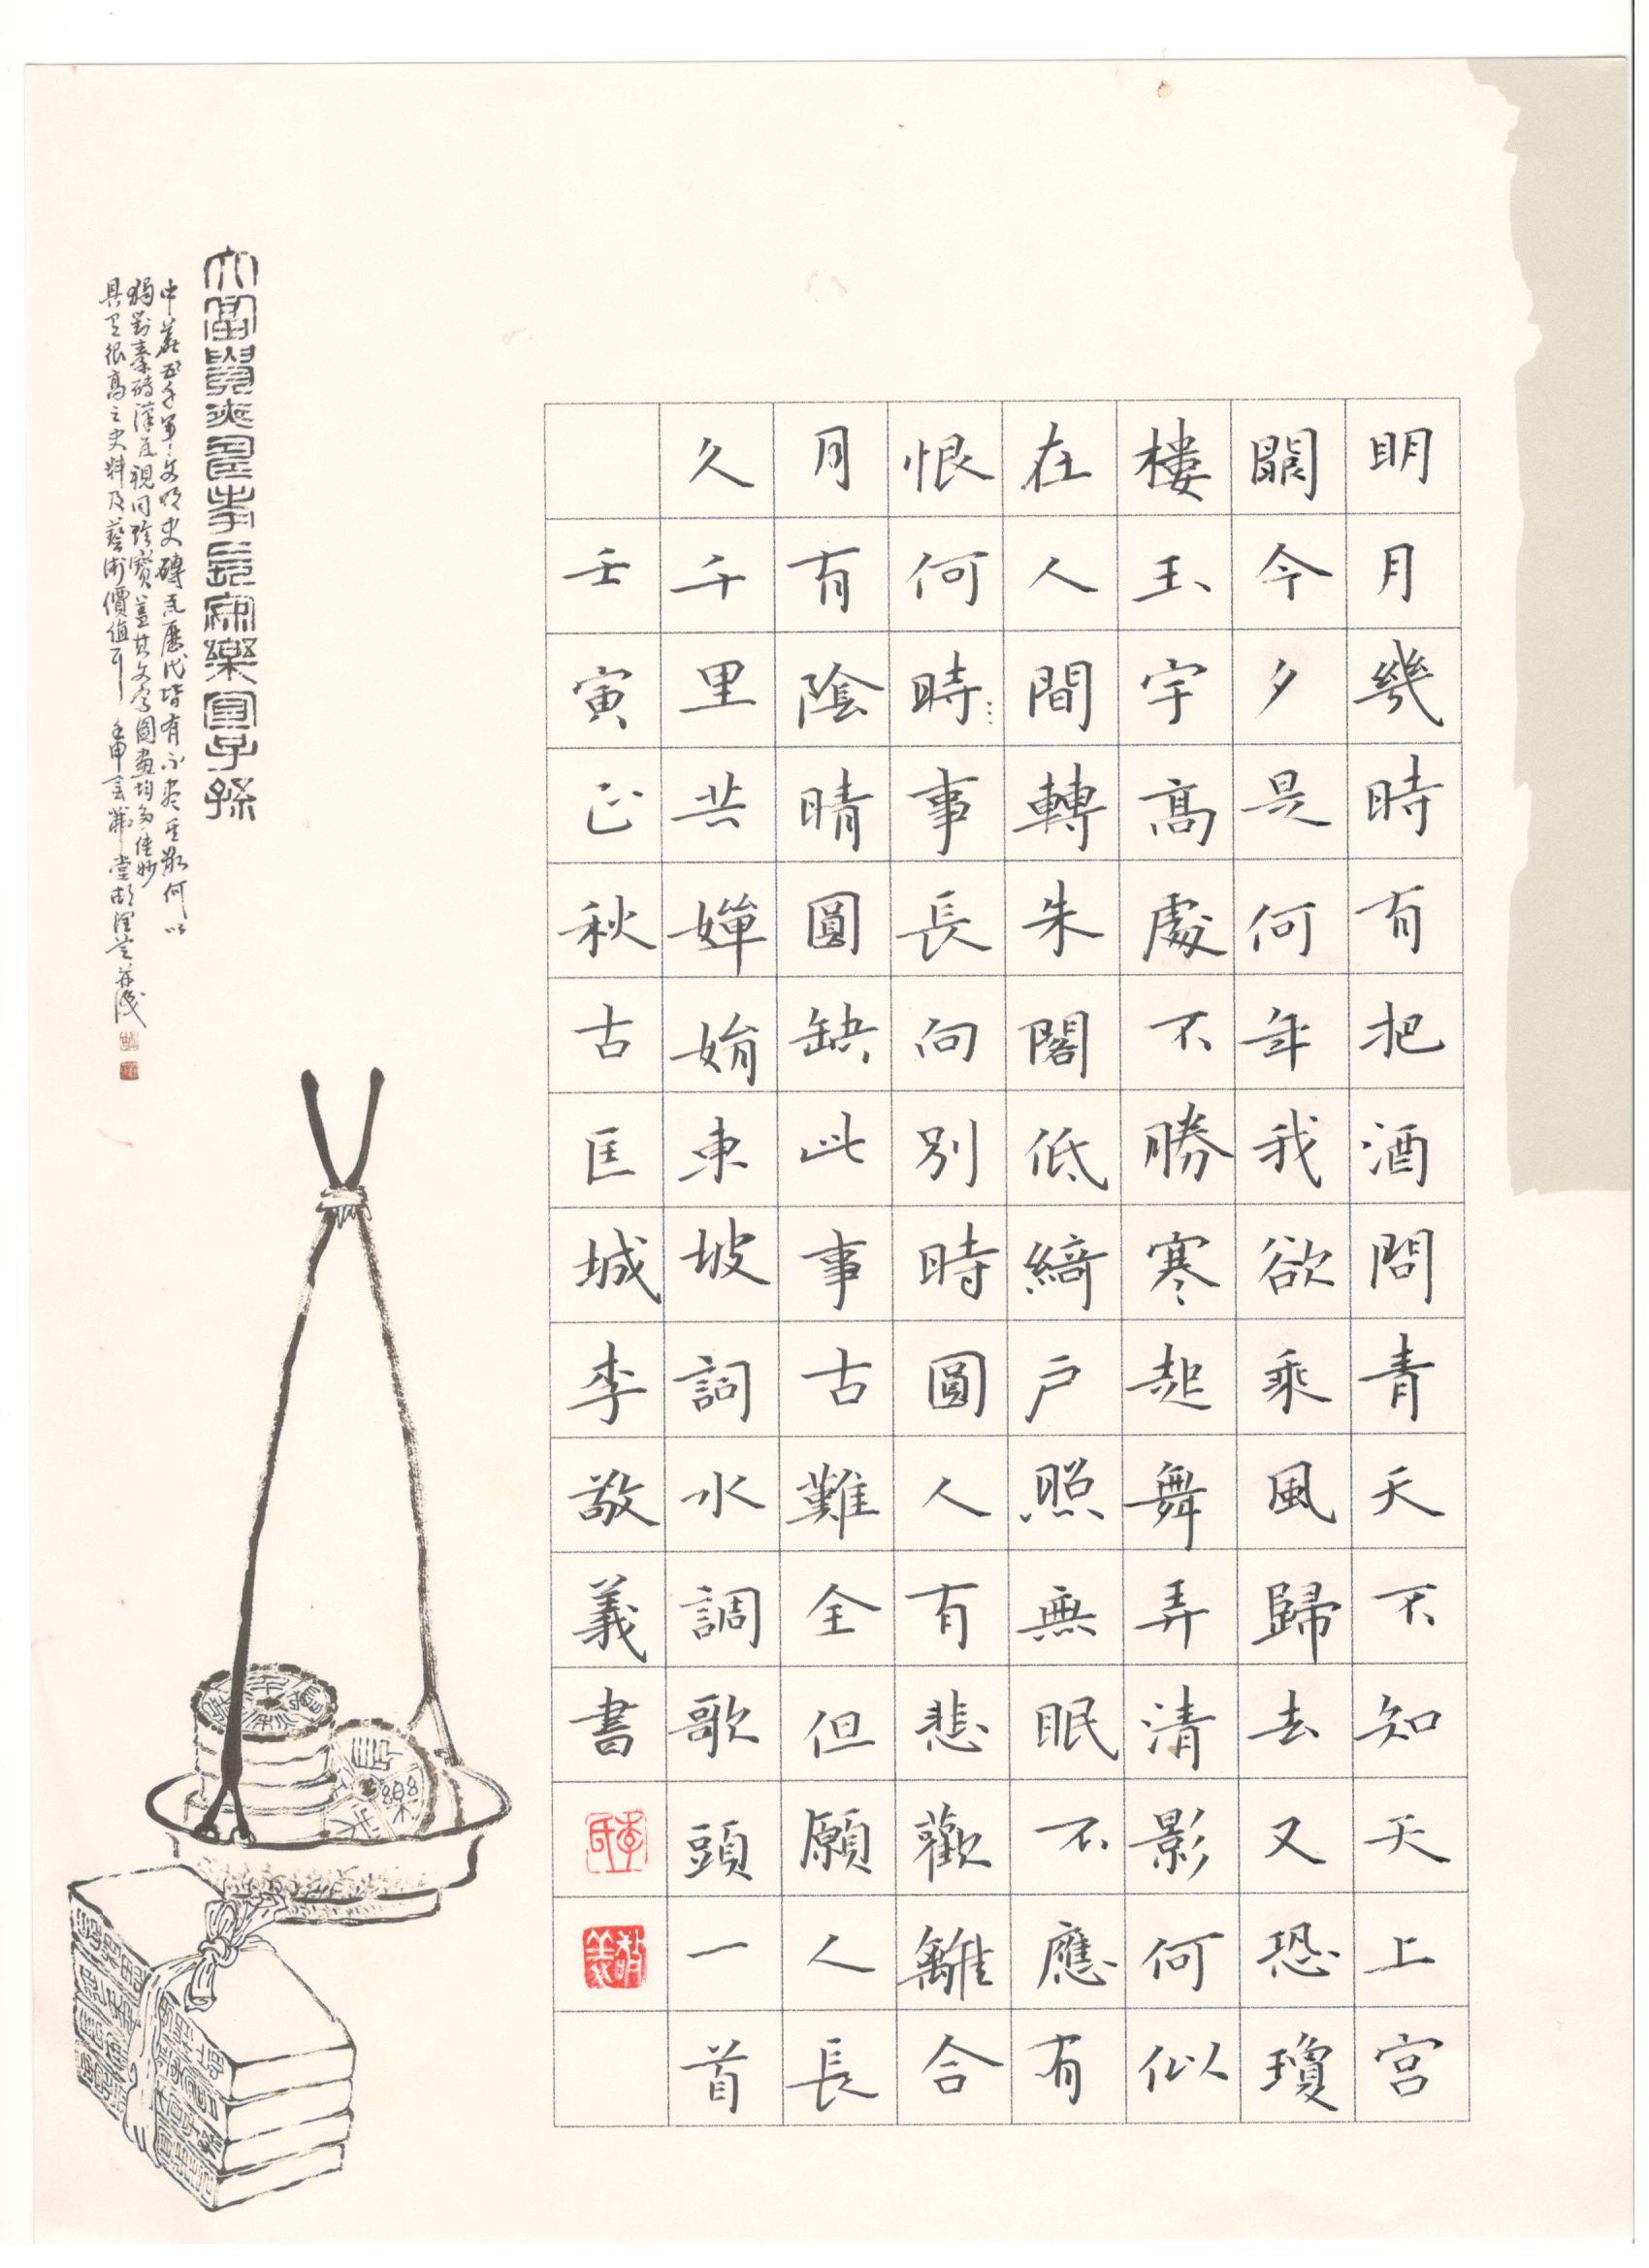 明月幾時有把酒問青天不知天上宮
闕今夕是何年我欲乘風歸去又恐瓊
樓玉宇高處不勝寒起舞弄清影何似
在人間轉朱閣低綺戶照無眠不應有
恨何時事長向別時圓人有悲歡離合
月有陰晴圓缺此事古難全但願人長
久千里共嬋娟東坡詞水調歌頭一首
壬寅正秋古匡城李敬義書
李氏
敬義
樂宜子孫
中華五千年文明史磚瓦歷代皆有不盡其數何以
獨對秦磚漢瓦視同珍寶蓋其文字圖畫均多佳妙
具有很高之史料及藝術價值耳 壬申 堂胡